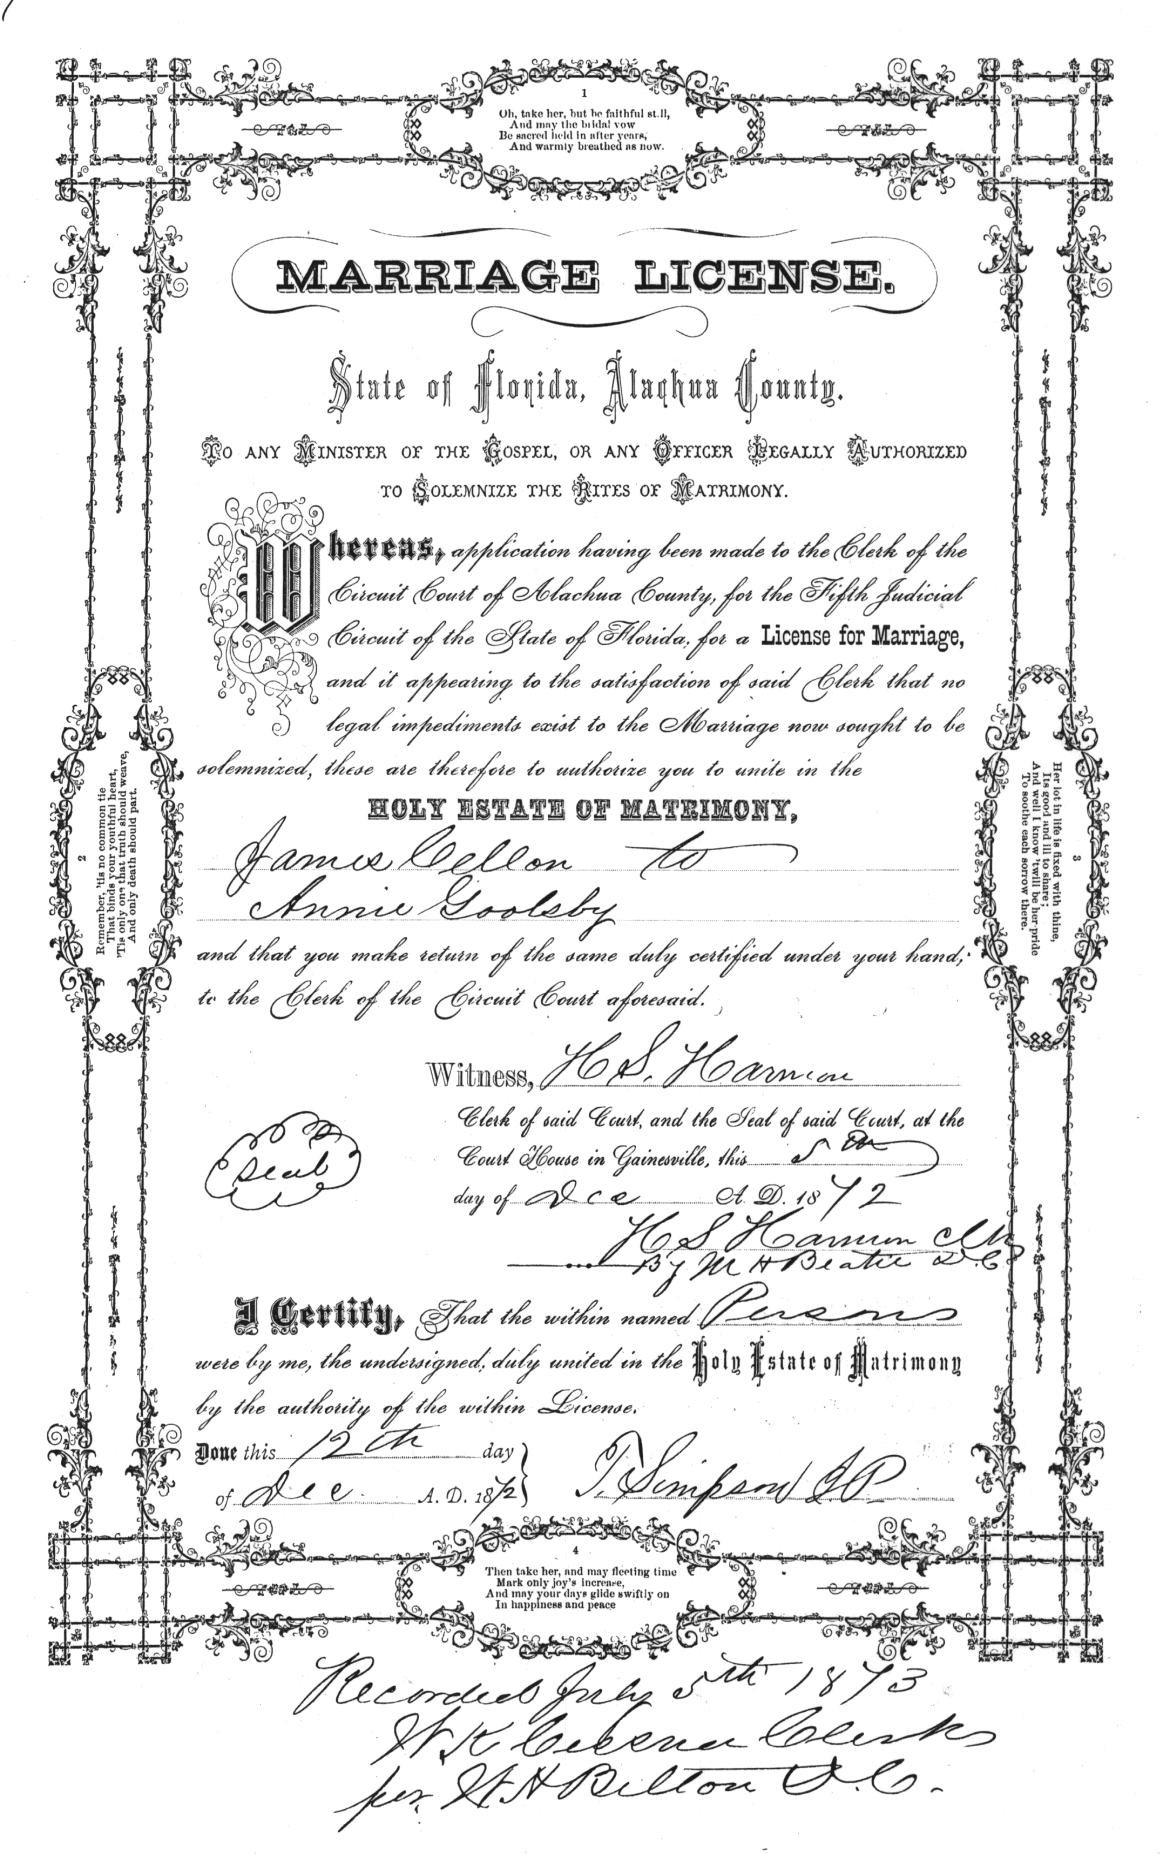 1
Oh, take her, but be faithful still,
And may the bridal vow
Be sacred held in after years,
And warmly breathed as now.
MARRIAGE LICENSE.
State of Florida, Alachua County.
TO ANY MINISTER OF THE GOSPEL, OR ANY OFFICER LEGALLY AUTHORIZED
TO SOLEMNIZE THE RITES OF MATRIMONY.
Whereas, application having been made to the Clerk of the
Circuit Court of Alachua County, for the Fifth Judicial
Circuit of the State of Florida, for a License for Marriage,
and it appearing to the satisfaction of said Clerk that no
legal impediments exist to the Marriage now sought to be
solemnized, these are therefore to authorize you to unite in the
HOLY ESTATE OF MATRIMONY,
James Cellon to
Annie Goolsby
and that you make return of the same duly certified under your hand,
to the Clerk of the Circuit Court aforesaid.
2
Remember, 'tis no common tie
That binds your youthful heart,
'Tis only one that truth should weave,
And only death should part.
3
Her lot in life is fixed with thine,
Its good and ill to share;
And well I know 'twill be her pride
To soothe each sorrow there.
Witness, H S. Harmon
Clerk of said Court, and the Seal of said Court, at the
Court House in Gainesville, this 5th
day of Dec A. D. 1872
Seal
H S Harmon Clk
By M H Beatie D.C
I Certify, That the within named Persons
were by me, the undersigned, duly united in the Holy Estate of Matrimony
by the authority of the within License.
Done this 12th day
of Dec. A. D. 1872
T. Simpson J P.
4
Then take her, and may fleeting time
Mark only joy's increase,
And may your days glide swiftly on
In happiness and peace
Recorded July 5th 1873
W K Cessna Clerk
per. W H Belton D. C.